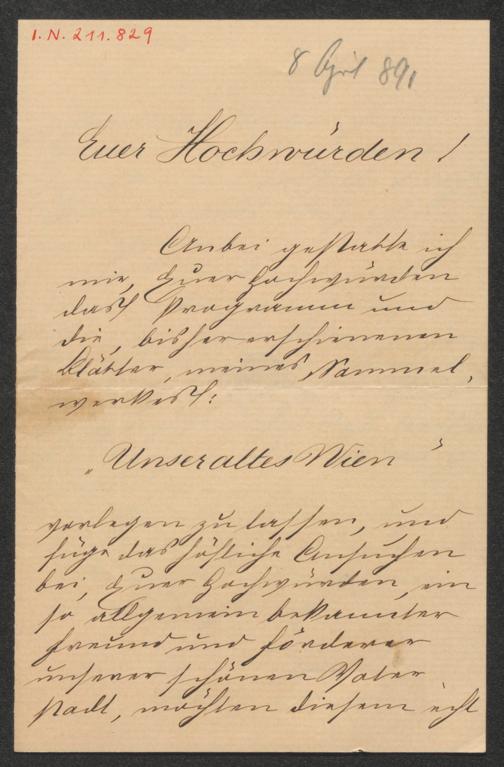 I. N. 211.829
8 April 891
Euer Hochwürden!
Anbei gestatte ich
mir, Euer Hochwürden
das Programm und
die, bisher erschienenen
Blätter, meines Sammel-
werkes:
„Unser altes Wien"
vorlegen zu lassen, und
füge das höfliche Ansuchen
bei, Euer Hochwürden, ein
so allgemein bekannter
Freund und Förderer
unserer schönen Vater-
stadt, möchten diesem echt